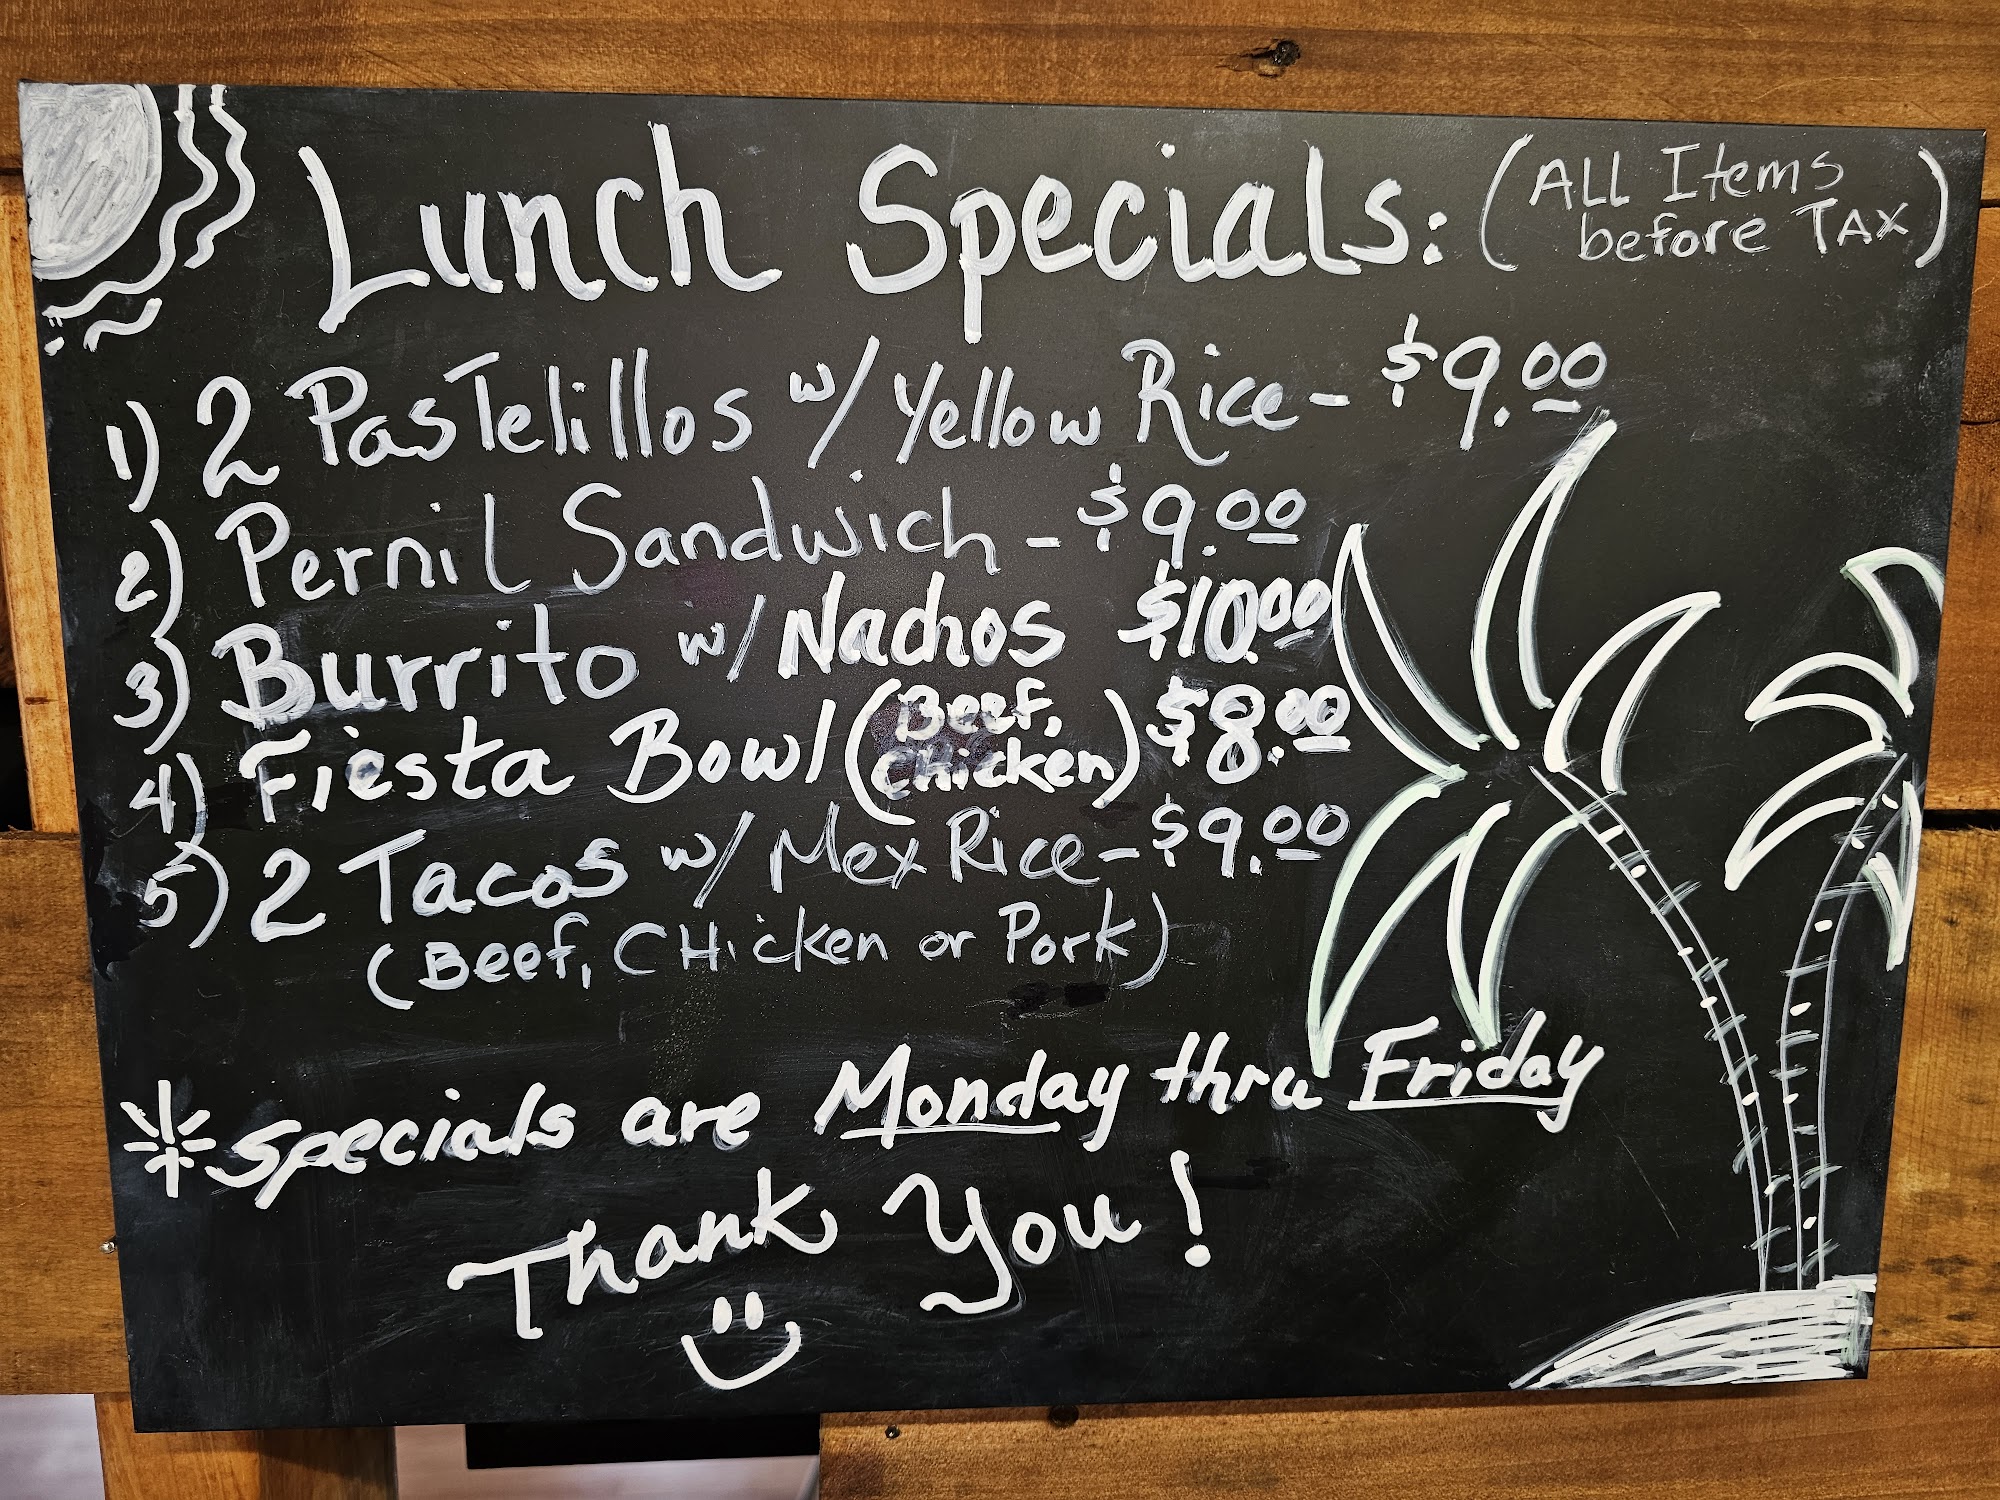 Lunch Specials: (ALL Items
before TAX)
1) 2 Pastelillos w/ Yellow Rice - $9.00
2) Pernil Sandwich - $9.00
3) Burrito w/ Nachos $10.00
4) Fiesta Bowl (Beef, $8.00
Chicken)
5) 2 Tacos w/ Mex Rice - $9.00
(Beef, CHicken or Pork)
*specials are Monday thru Friday
Thank You!